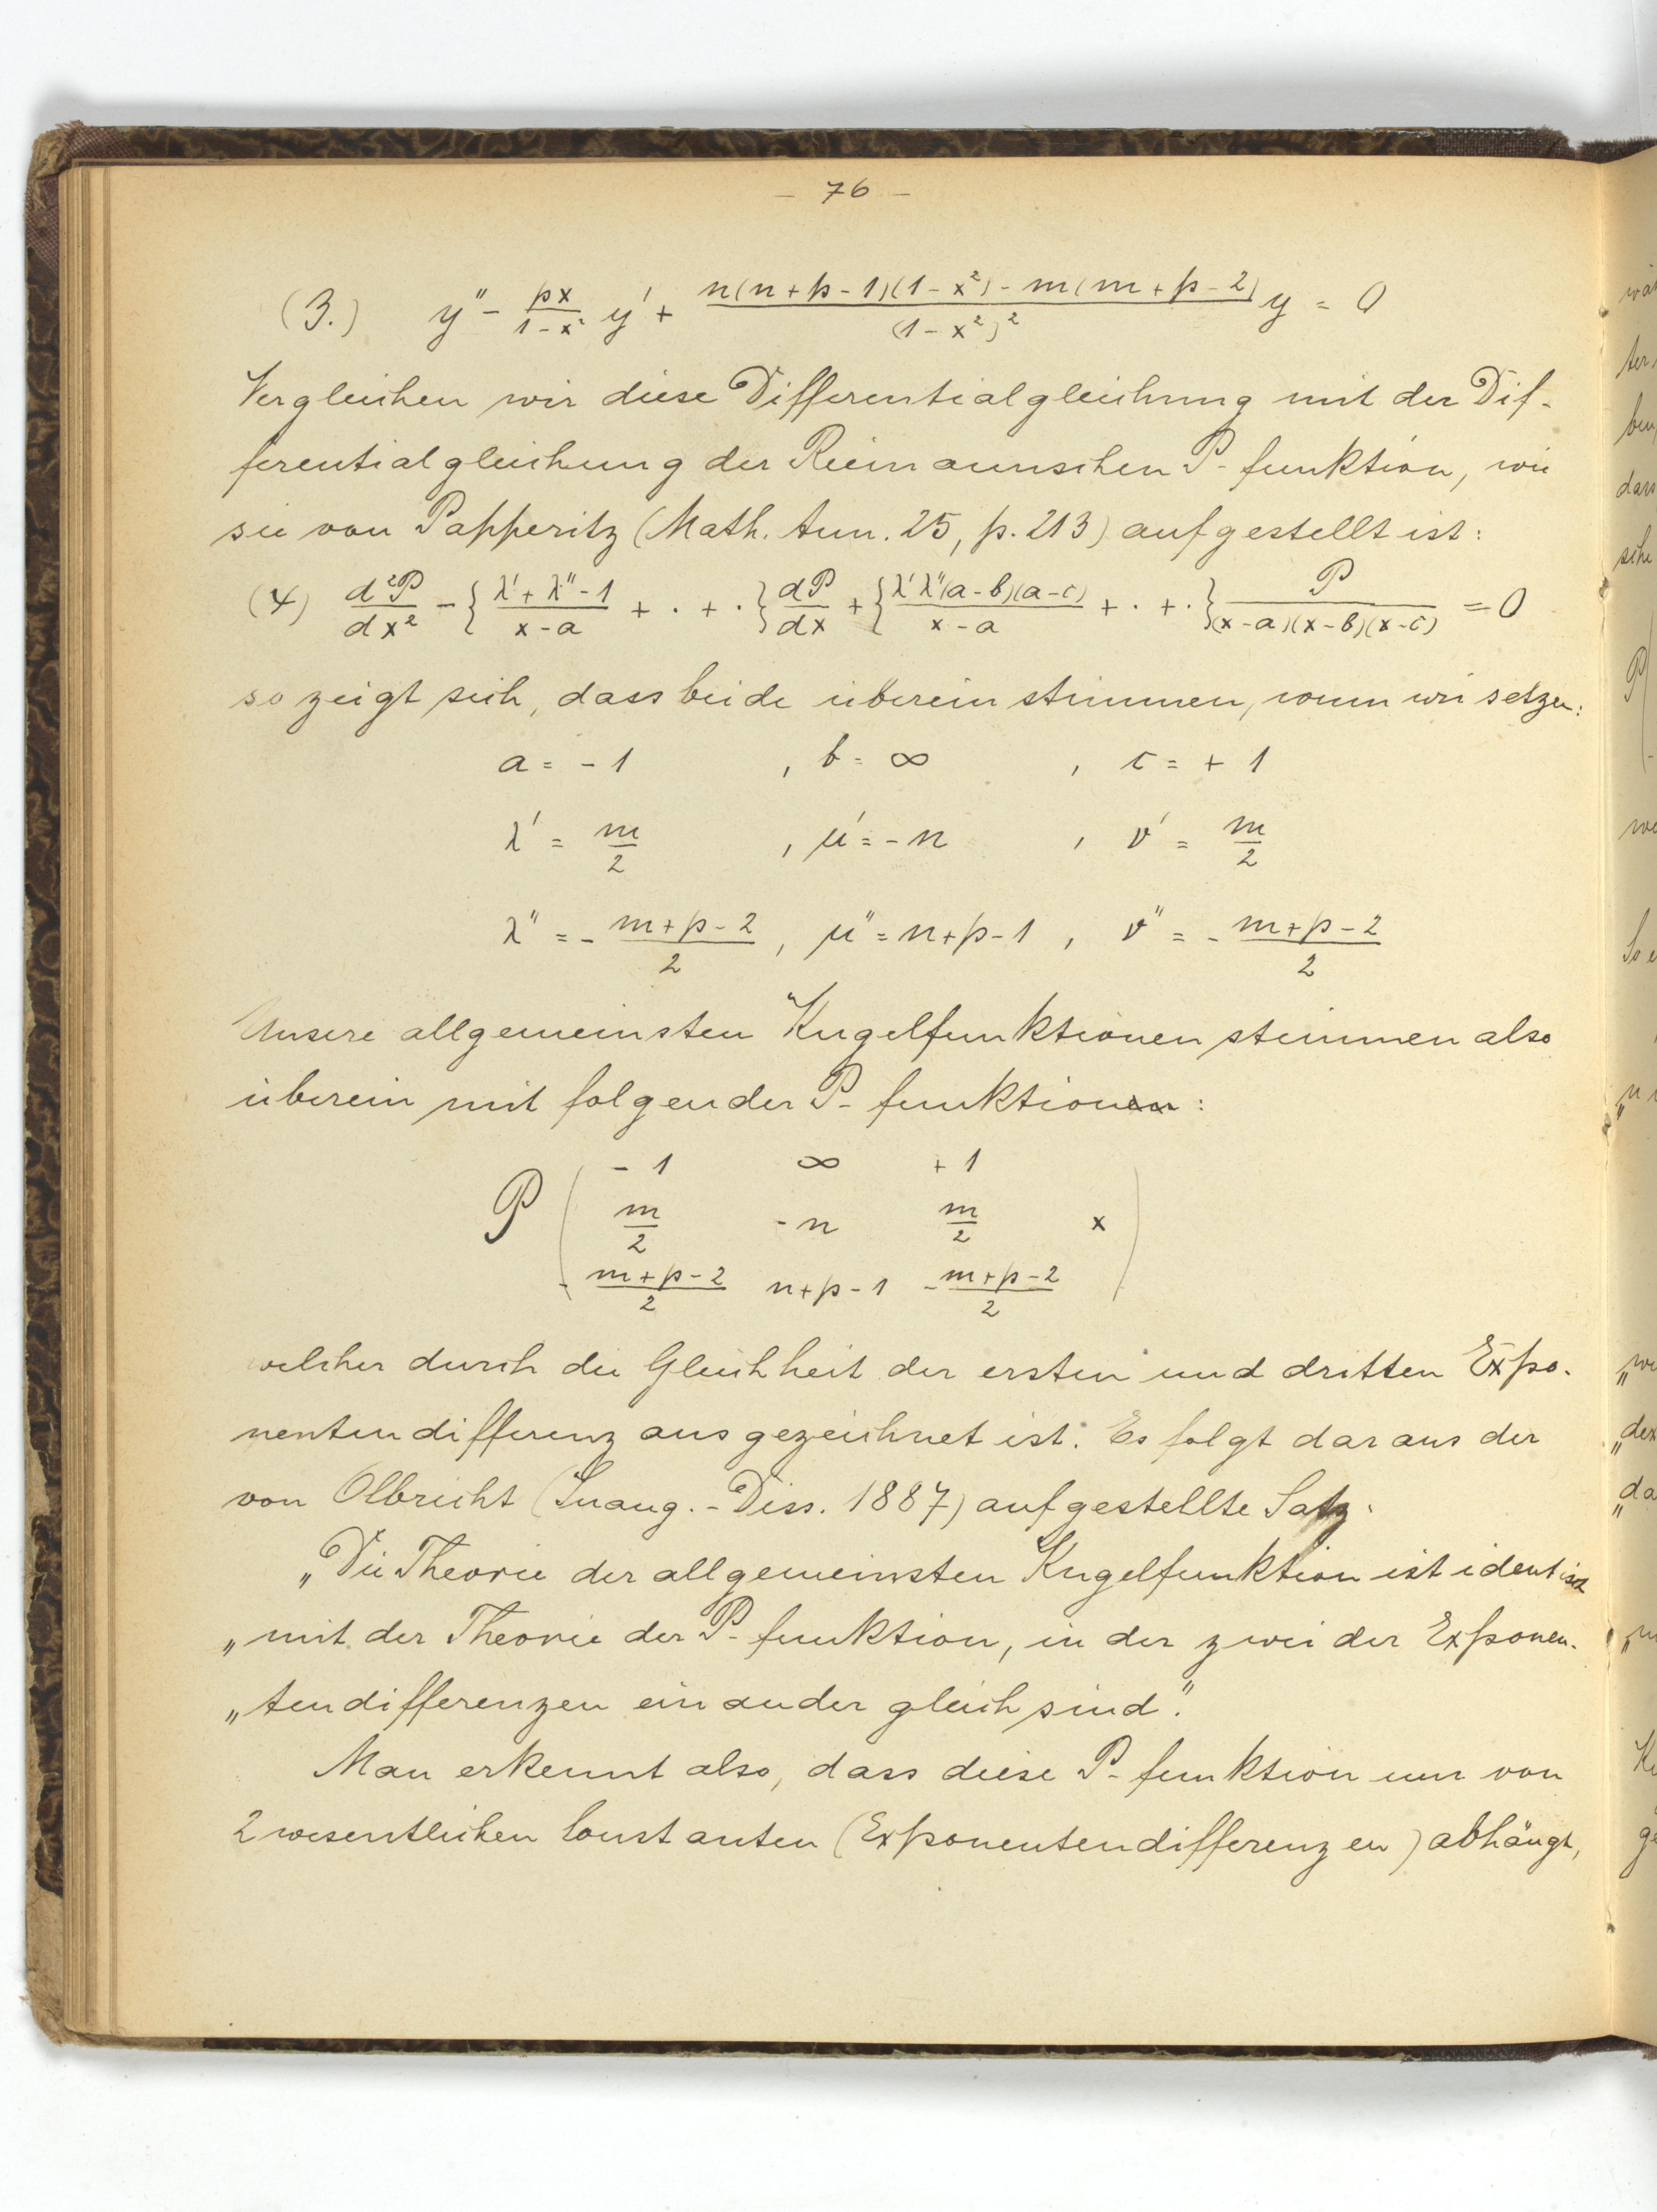 – 76 –
(3.) y'' - \frac{px}{1-x^2} y' + \frac{n(n+p-1)(1-x^2) - m(m+p-2)}{(1-x^2)^2} y = 0
Vergleichen wir diese Differentialgleichung mit der Dif-
ferentialgleichung der Riemannschen P-funktion, wie
sie von Papperitz (Math. Ann. 25, p. 213) aufgestellt ist:
(4) \frac{d^2P}{dx^2} - \{ \frac{λ'+λ''-1}{x-a} + . + . \} \frac{dP}{dx} + \{ \frac{λ'λ''(a-b)(a-c)}{x-a} + . + . \} \frac{P}{(x-a)(x-b)(x-c)} = 0
so zeigt sich, dass beide übereinstimmen, wenn wir setzen:
a = -1 , b = ∞ , c = +1
λ' = \frac{m}{2} , μ' = -n , ν' = \frac{m}{2}
λ'' = -\frac{m+p-2}{2} , μ'' = n+p-1 , ν'' = -\frac{m+p-2}{2}
Unsere allgemeinsten Kugelfunktionen stimmen also
überein mit folgender P-funktionen:
-1 ∞ +1
P ( \frac{m}{2} -n \frac{m}{2} x )
-\frac{m+p-2}{2} n+p-1 -\frac{m+p-2}{2}
welcher durch die Gleichheit der ersten und dritten Expo-
nentendifferenz ausgezeichnet ist. Es folgt daraus der
von Olbricht (Inaug.-Diss. 1887) aufgestellte Satz:
„Die Theorie der allgemeinsten Kugelfunktion ist identisch
„mit der Theorie der P-funktion, in der zwei der Exponen-
„tendifferenzen einander gleich sind."
Man erkennt also, dass diese P-funktion nur von
2 wesentlichen Constanten (Exponentendifferenzen) abhängt,